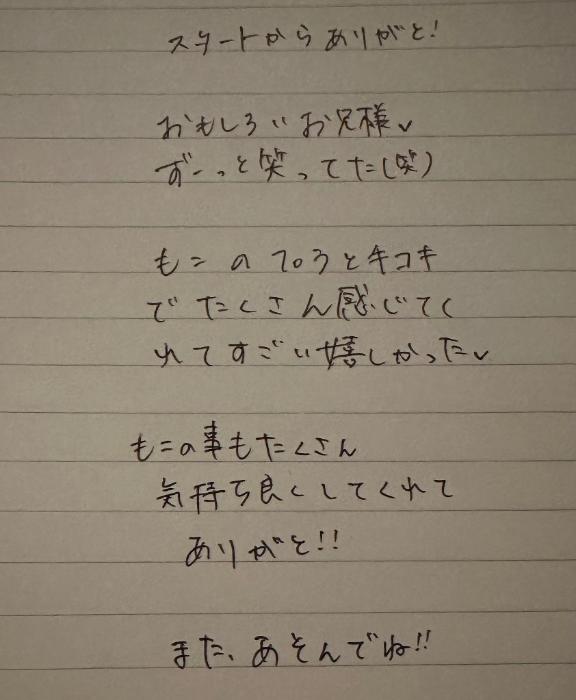 スタートからありがと!
おもしろいお兄様✓
ずーっと笑ってた(笑)
もこのフロうと手コキ
でたくさん感じてく
れてすごい嬉しかった✓
もこの事もたくさん
気持ち良くしてくれて
ありがと!!
また、あそんでね!!